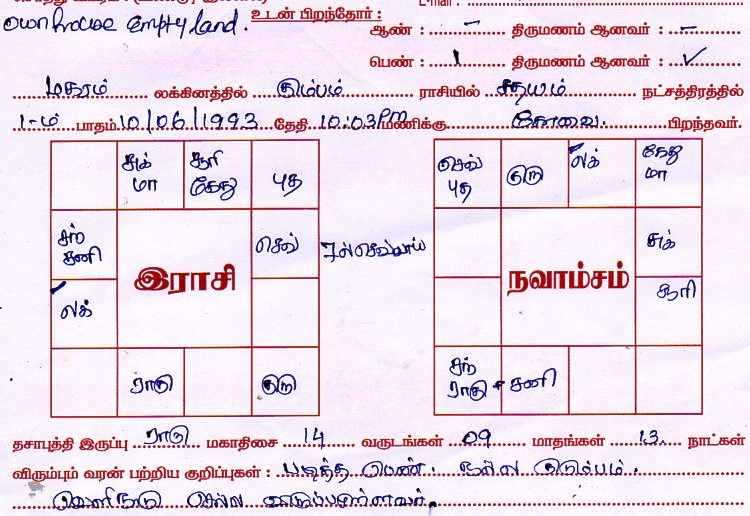 E-mail :
own house empty land. உடன் பிறந்தோர் :
ஆண் : – திருமணம் ஆனவர் : –
பெண் : 1 திருமணம் ஆனவர் : ✓
மகரம் லக்கினத்தில் கும்பம் ராசியில் சதயம் நட்சத்திரத்தில்
1-ம் பாதம் 10/06/1993 தேதி 10:03PM மணிக்கு கோவை. பிறந்தவர்.
சுக் மா
சூரி கேது
புத
சந் சனி
செவ்
7ல் செவ்வாய்
இராசி
லக்
ராகு
குரு
செவ் புத
குரு
லக்
கேது மா
சுக்
நவாம்சம்
சூரி
சந் ராகு
சனி
தசாபுத்தி இருப்பு ராகு மகாதிசை 14 வருடங்கள் 09 மாதங்கள் 13 நாட்கள்
விரும்பும் வரன் பற்றிய குறிப்புகள் : படித்த பெண். நல்ல குடும்பம்.
வெளிநாடு செல்ல